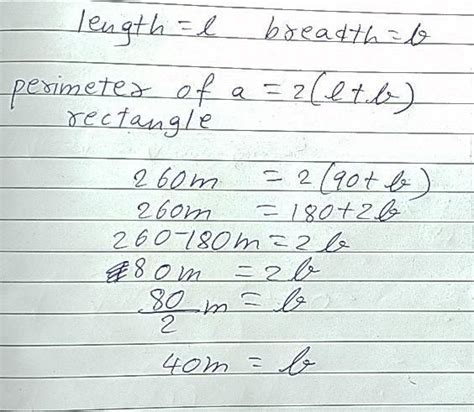 length = l   breadth = b
perimeter of a = 2(l+b)
rectangle
260m = 2(90+b)
260m = 180+2b
260-180m = 2b
80m = 2b
80/2 m = b
40m = b